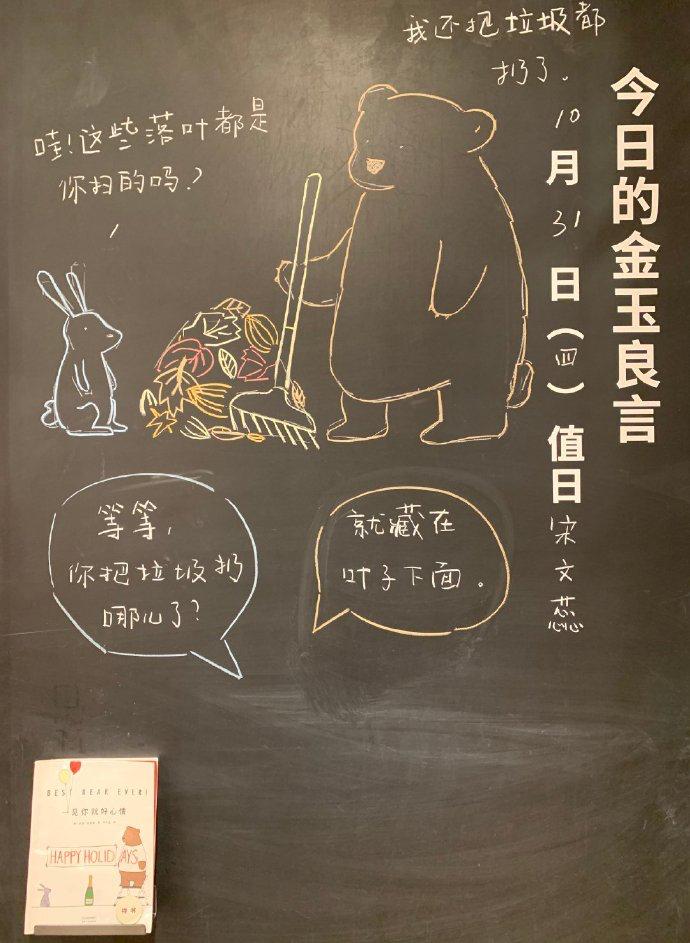 今日的金玉良言
10月31日（四）值日宋文蕊
哇！这些落叶都是
你扫的吗？
我还把垃圾都
扔了。
等等，
你把垃圾扔
哪儿了？
就藏在
叶子下面。
BEST BEAR EVER!
一见你就好心情
HAPPY HOLIDAYS